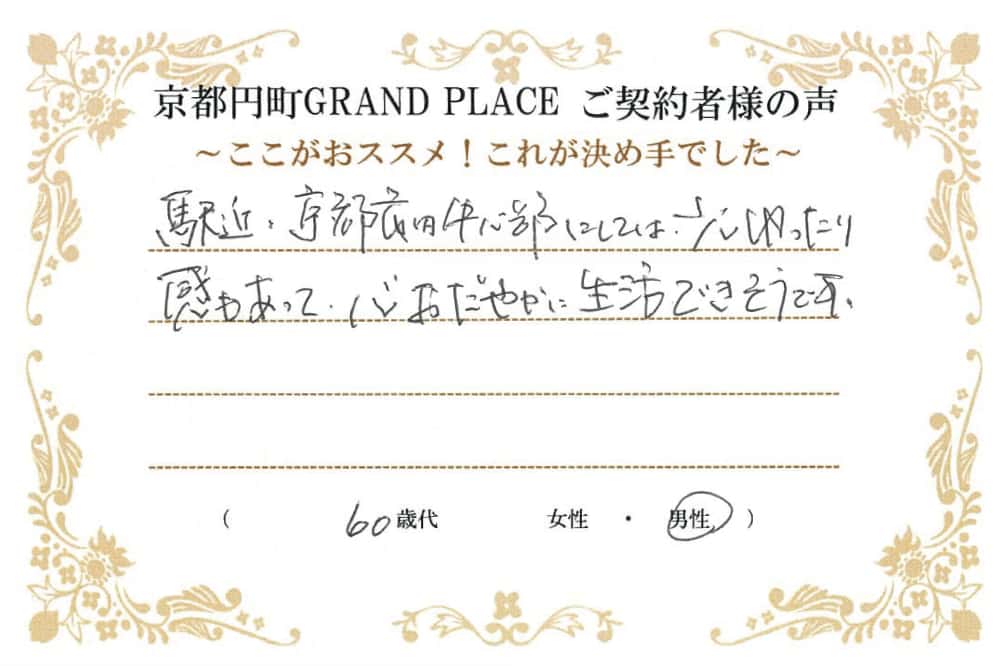 京都円町GRAND PLACE ご契約者様の声
～ここがおススメ！これが決め手でした～
駅近、京都市内中心部にしては、少しゆったり
感もあって、心おだやかに生活できそうです。
( 60歳代 女性 ・ 男性 )